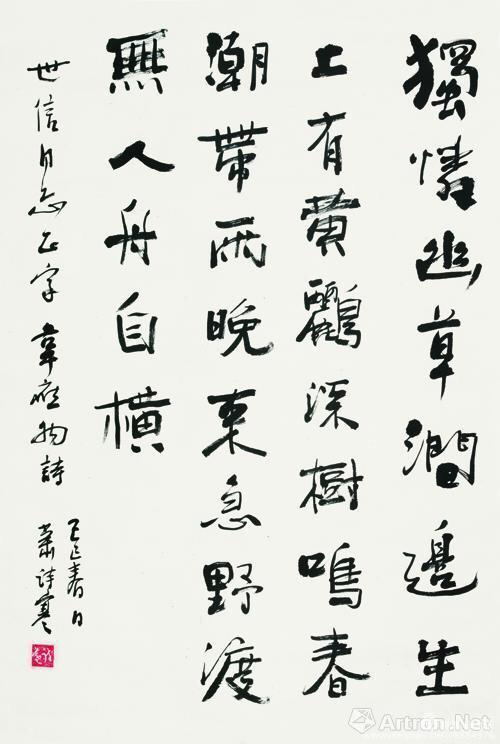 獨憐幽草澗邊生
上有黃鸝深樹鳴春
潮帶雨晚来急野渡
無人舟自橫
世信同志正字 韋應物詩
春日
Artron.Net